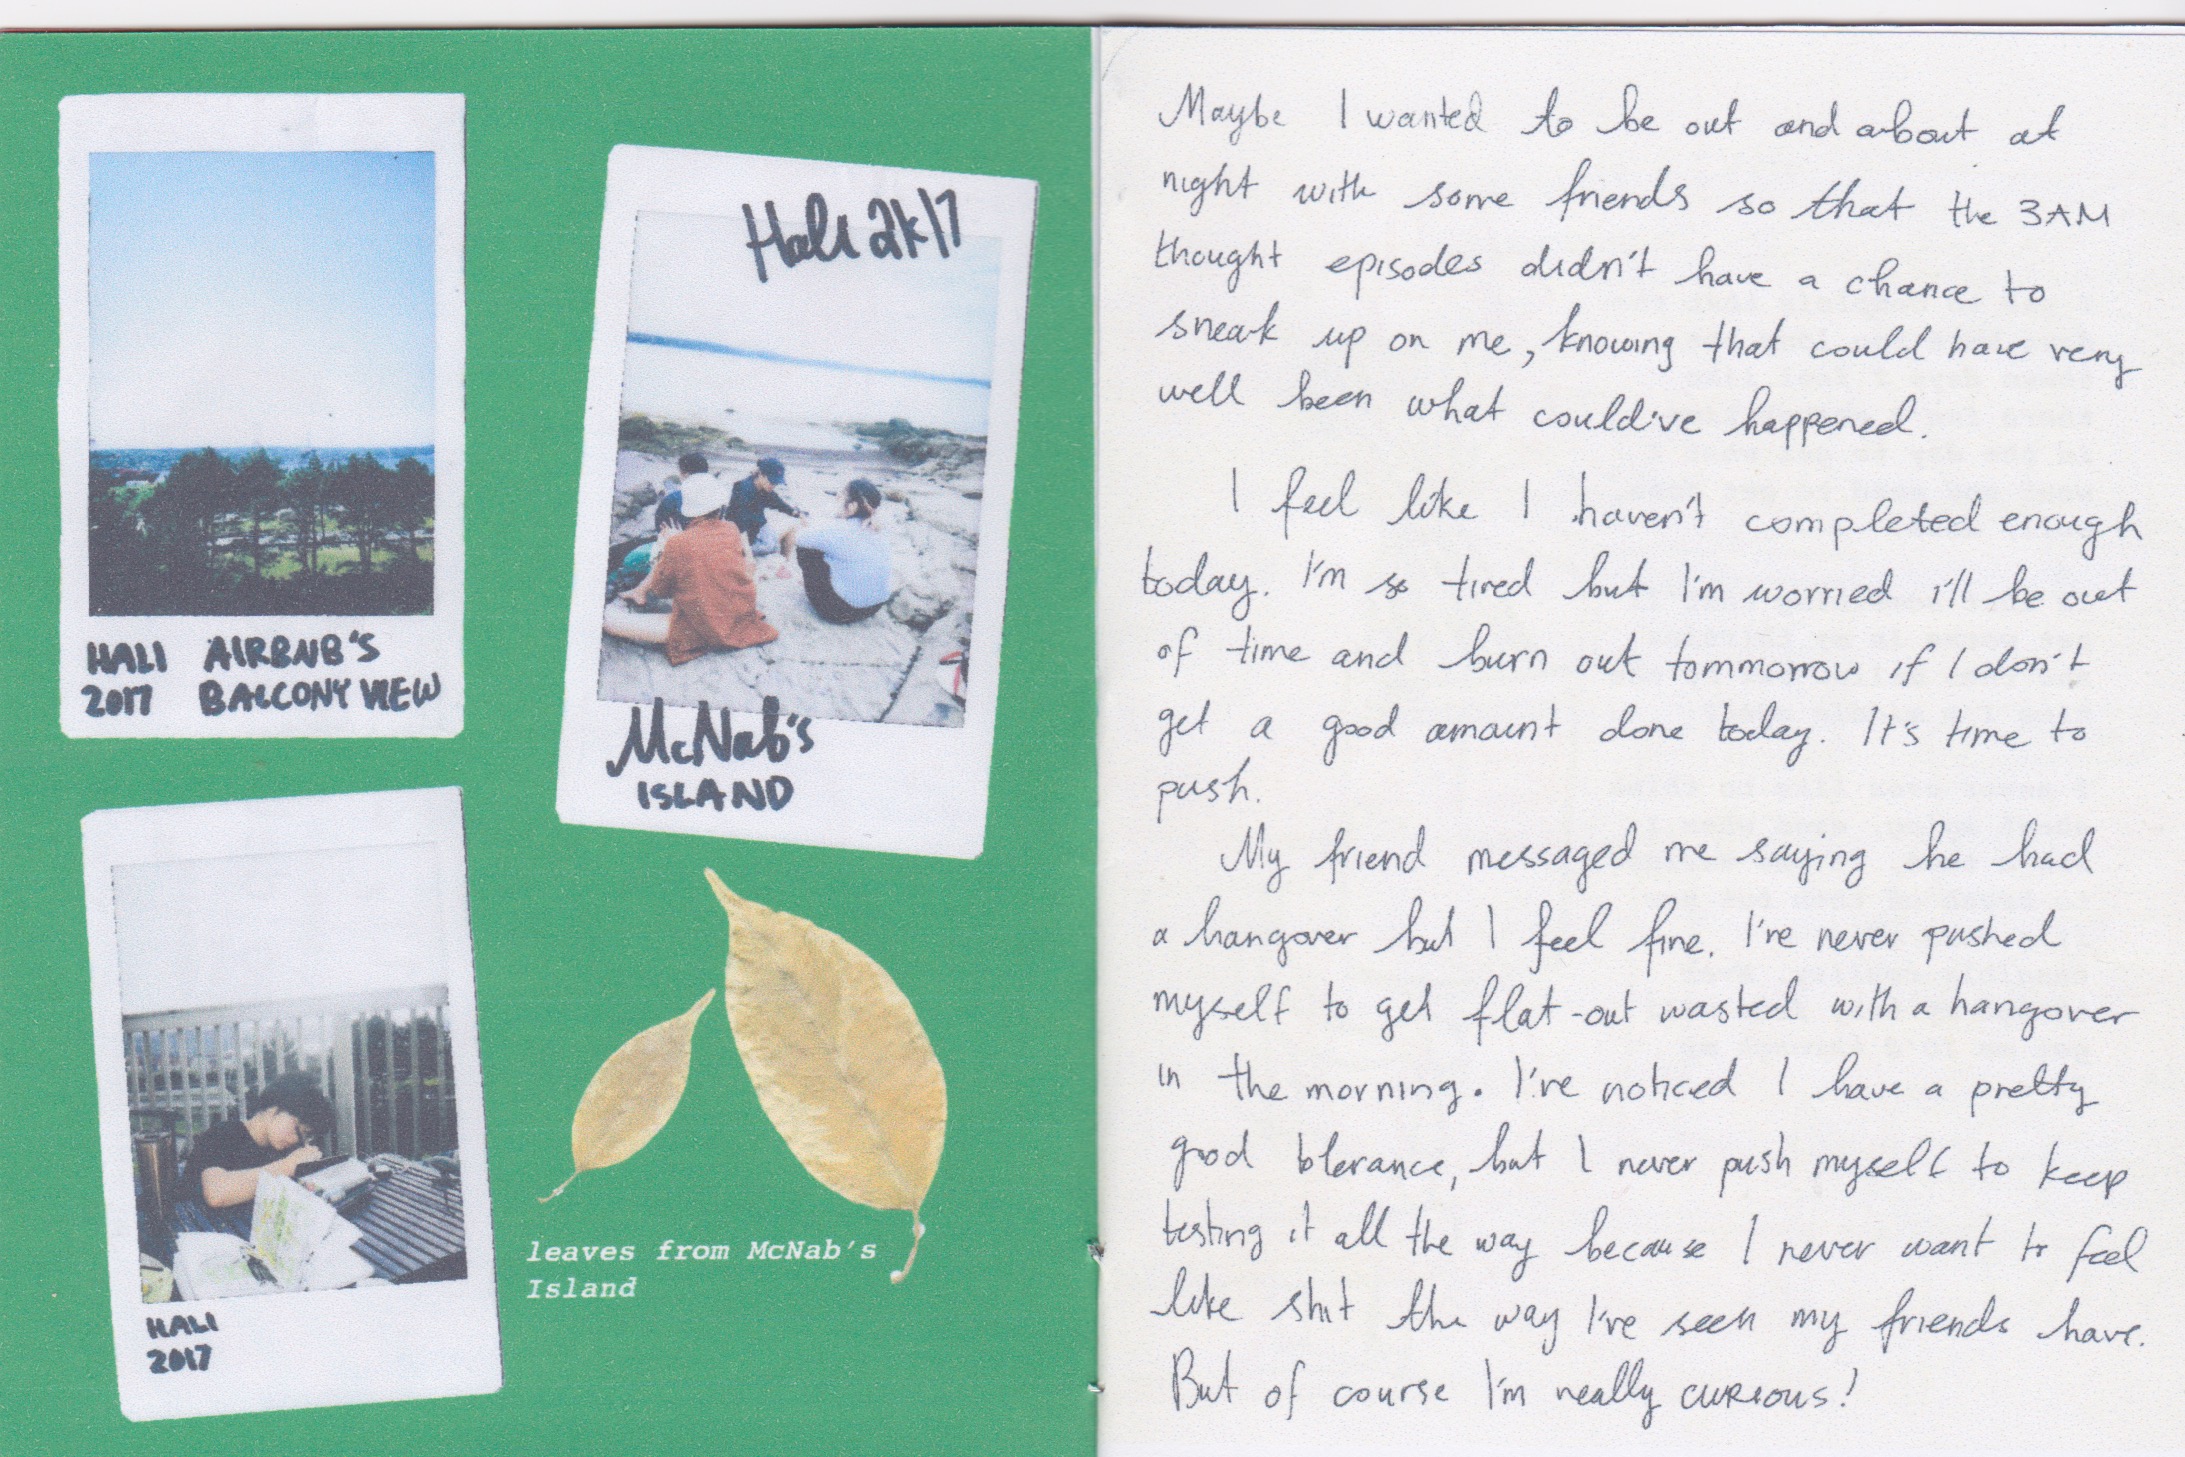 HALI AIRBNB'S
2017 BALCONY VIEW
Hali 2k17
McNab's
ISLAND
HALI
2017
leaves from McNab's
Island
Maybe I wanted to be out and about at
night with some friends so that the 3AM
thought episodes didn't have a chance to
sneak up on me, knowing that could have very
well been what could've happened.
I feel like I haven't completed enough
today. I'm so tired but I'm worried i'll be out
of time and burn out tommorrow if I don't
get a good amount done today. It's time to
push.
My friend messaged me saying he had
a hangover but I feel fine. I've never pushed
myself to get flat-out wasted with a hangover
in the morning. I've noticed I have a pretty
good tolerance, but I never push myself to keep
testing it all the way because I never want to feel
like shit the way I've seen my friends have.
But of course I'm really curious!